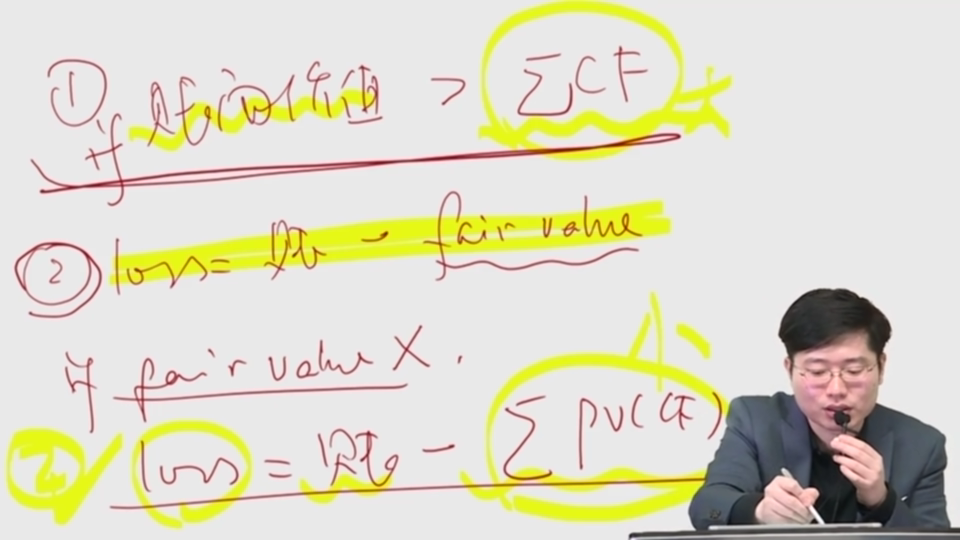 ① if 账面价值 > ∑CF 大
② loss = 账 - fair value
if fair value X.
2 loss = 账 - ∑PV(CF) 小